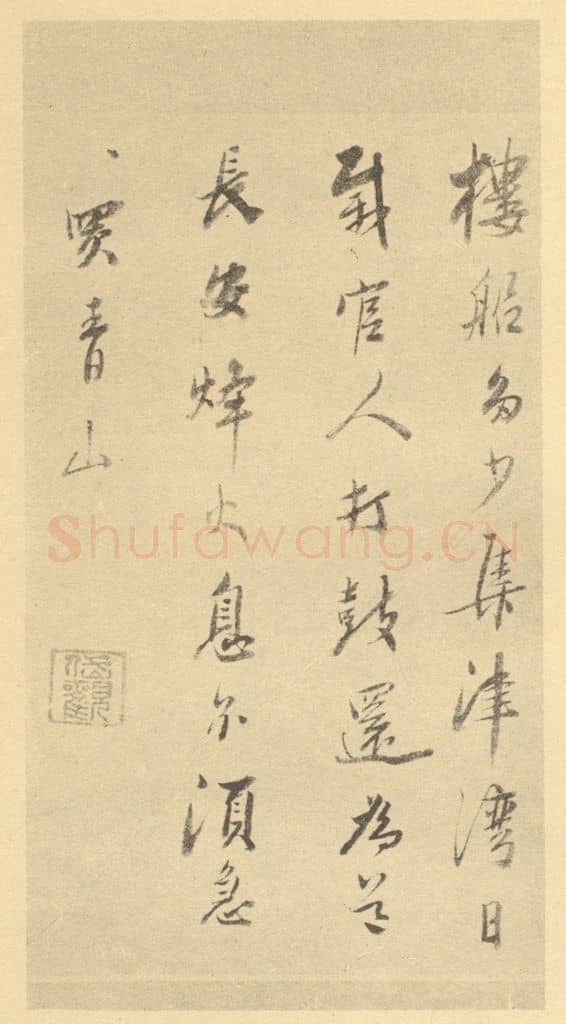 樓船多少集津湾日
載官人打鼓還為道
長安烽火息不須急
々買青山
Shufawang.CN